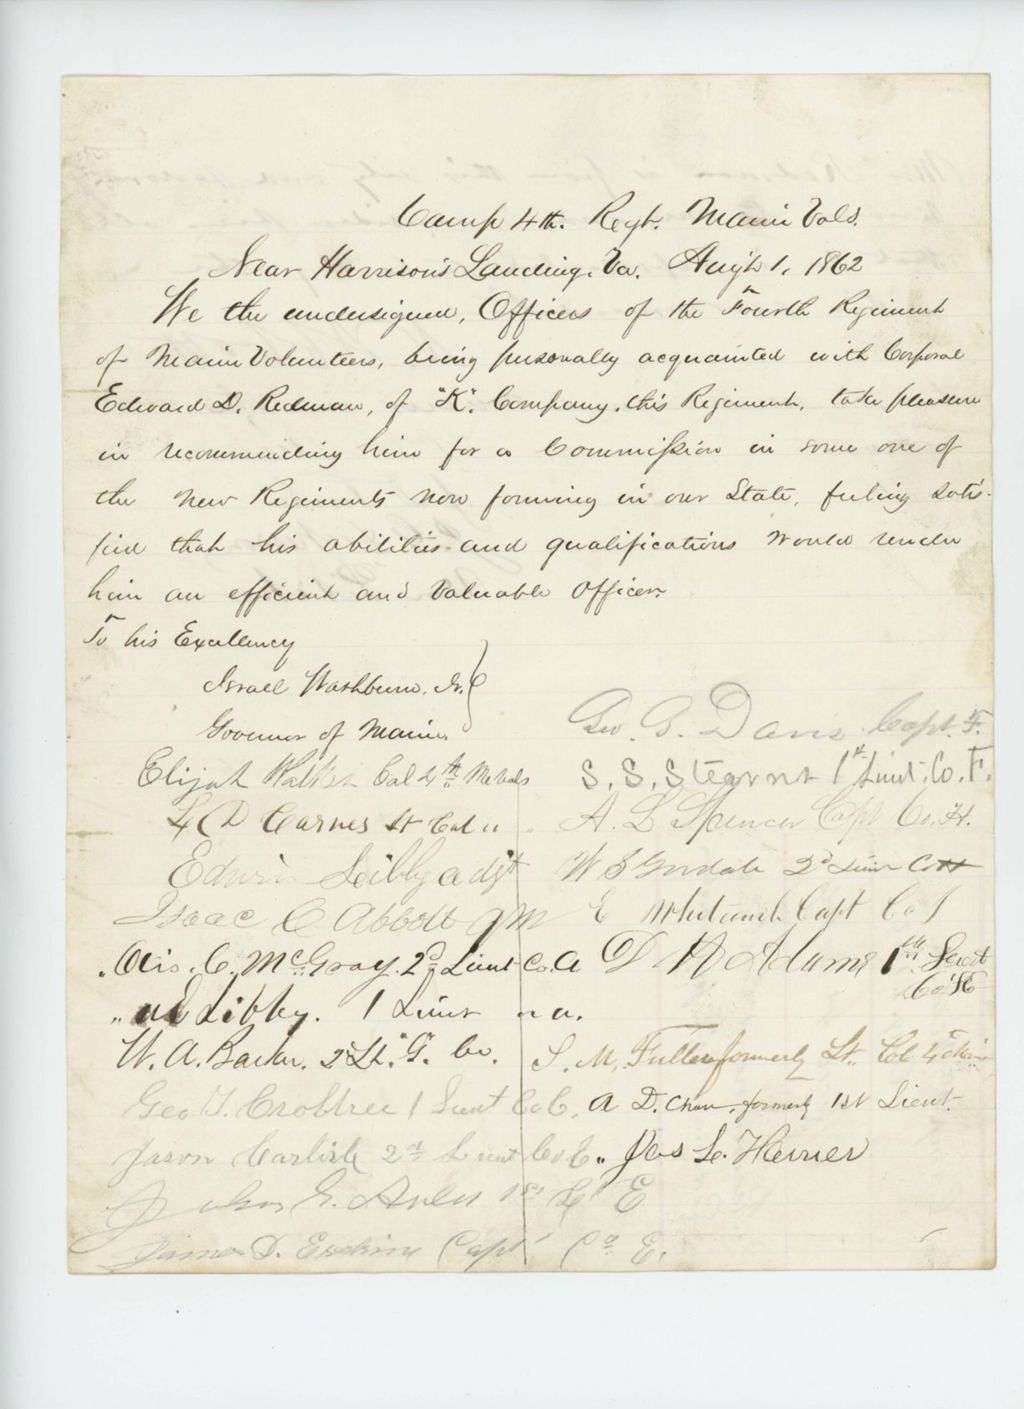 Camp 4th. Regt. Maine Vols.
Near Harrison's Landing, Va. Aug't 1, 1862
We the undersigned, Officers of the Fourth Regiment
of Maine Volunteers, being personally acquainted with Corporal
Edward D. Redman, of "K". Company, this Regiment, take pleasure
in recommending him for a Commission in some one of
the new Regiments now forming in our State, feeling satis-
fied that his abilities and qualifications would render
him an efficient and valuable Officer.
To his Excellency
Israel Washburn, Jr.
Governor of Maine.
Geo. G. Davis Capt. F.
Elijah Walker Col 4th Me Vols
S. S. Stearns 1st Lieut. Co. F.
L D Carver Lt Col "
A. L Spencer Capt Co. H.
Edwin Libby adjt
W 2d Lieut Co H
Isaac C Abbott QM
E Whitcomb Capt Co I
Otis. C. McGray. 2d Lieut Co. A
D H Adams 1st Lieut
Co K
Libby. 1 Lieut " a.
W. A. Barker. 2d Lt. "G". Co.
S. M. Fuller formerly Lt. Col 4 Maine
Geo T. Crabtree 1 Lieut Co C.
A D. Chase, formerly 1st Lieut.
Jason Carlisle 2nd Lieut Co C.
" Jos L. Havner
John G. 1st Lt E
James D. Erskine Capt Co E.